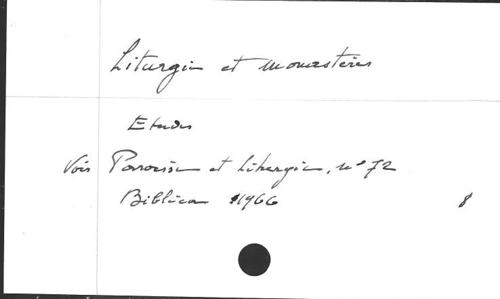 Liturgie et monastères
Etudes
Voir Paroisse et Liturgie, n° 72
Biblica 1966 8